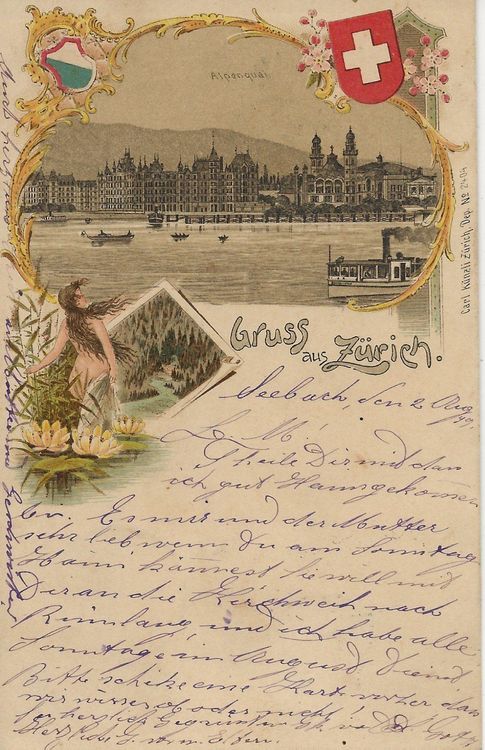 Alpenquai
Carl Künzli Zürich, Dep. No 2404
Gruss
aus Zürich.
Seebach, den 2 Aug
L. M!
Theile Dir mit dan
ich gut Heimgekommen
bin. Es mir und der Mutter
sehr lieb wenn Du am Sonntag
Heim kännest sie will mit
Dir an die Kirchweih nach
Rümlang und ich habe alle
Sonntage im August Dienst
Bitte schike eine Kart vorher dan
wir wissen ob oder nicht!
herzlich Gegrüsst
Herzliche G. v. m. Eltern.